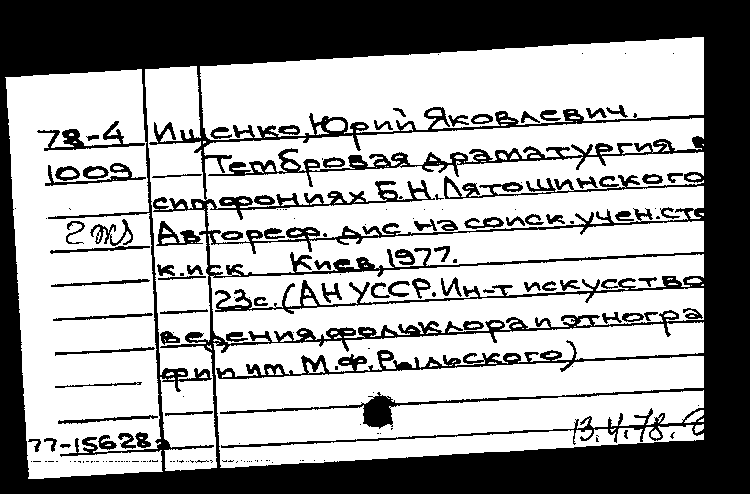 78-4 Ищенко, Юрий Яковлевич.
1009 Тембровая драматургия в
симфониях Б.Н.Лятошинского
Автореф. дис. на соиск. учен. сте
к. иск. Киев, 1977.
23с. (АН УССР. Ин-т искусство
ведения, фольклора и этногра
фии им. М.Ф.Рыльского)
77-15628а
13.4.78.